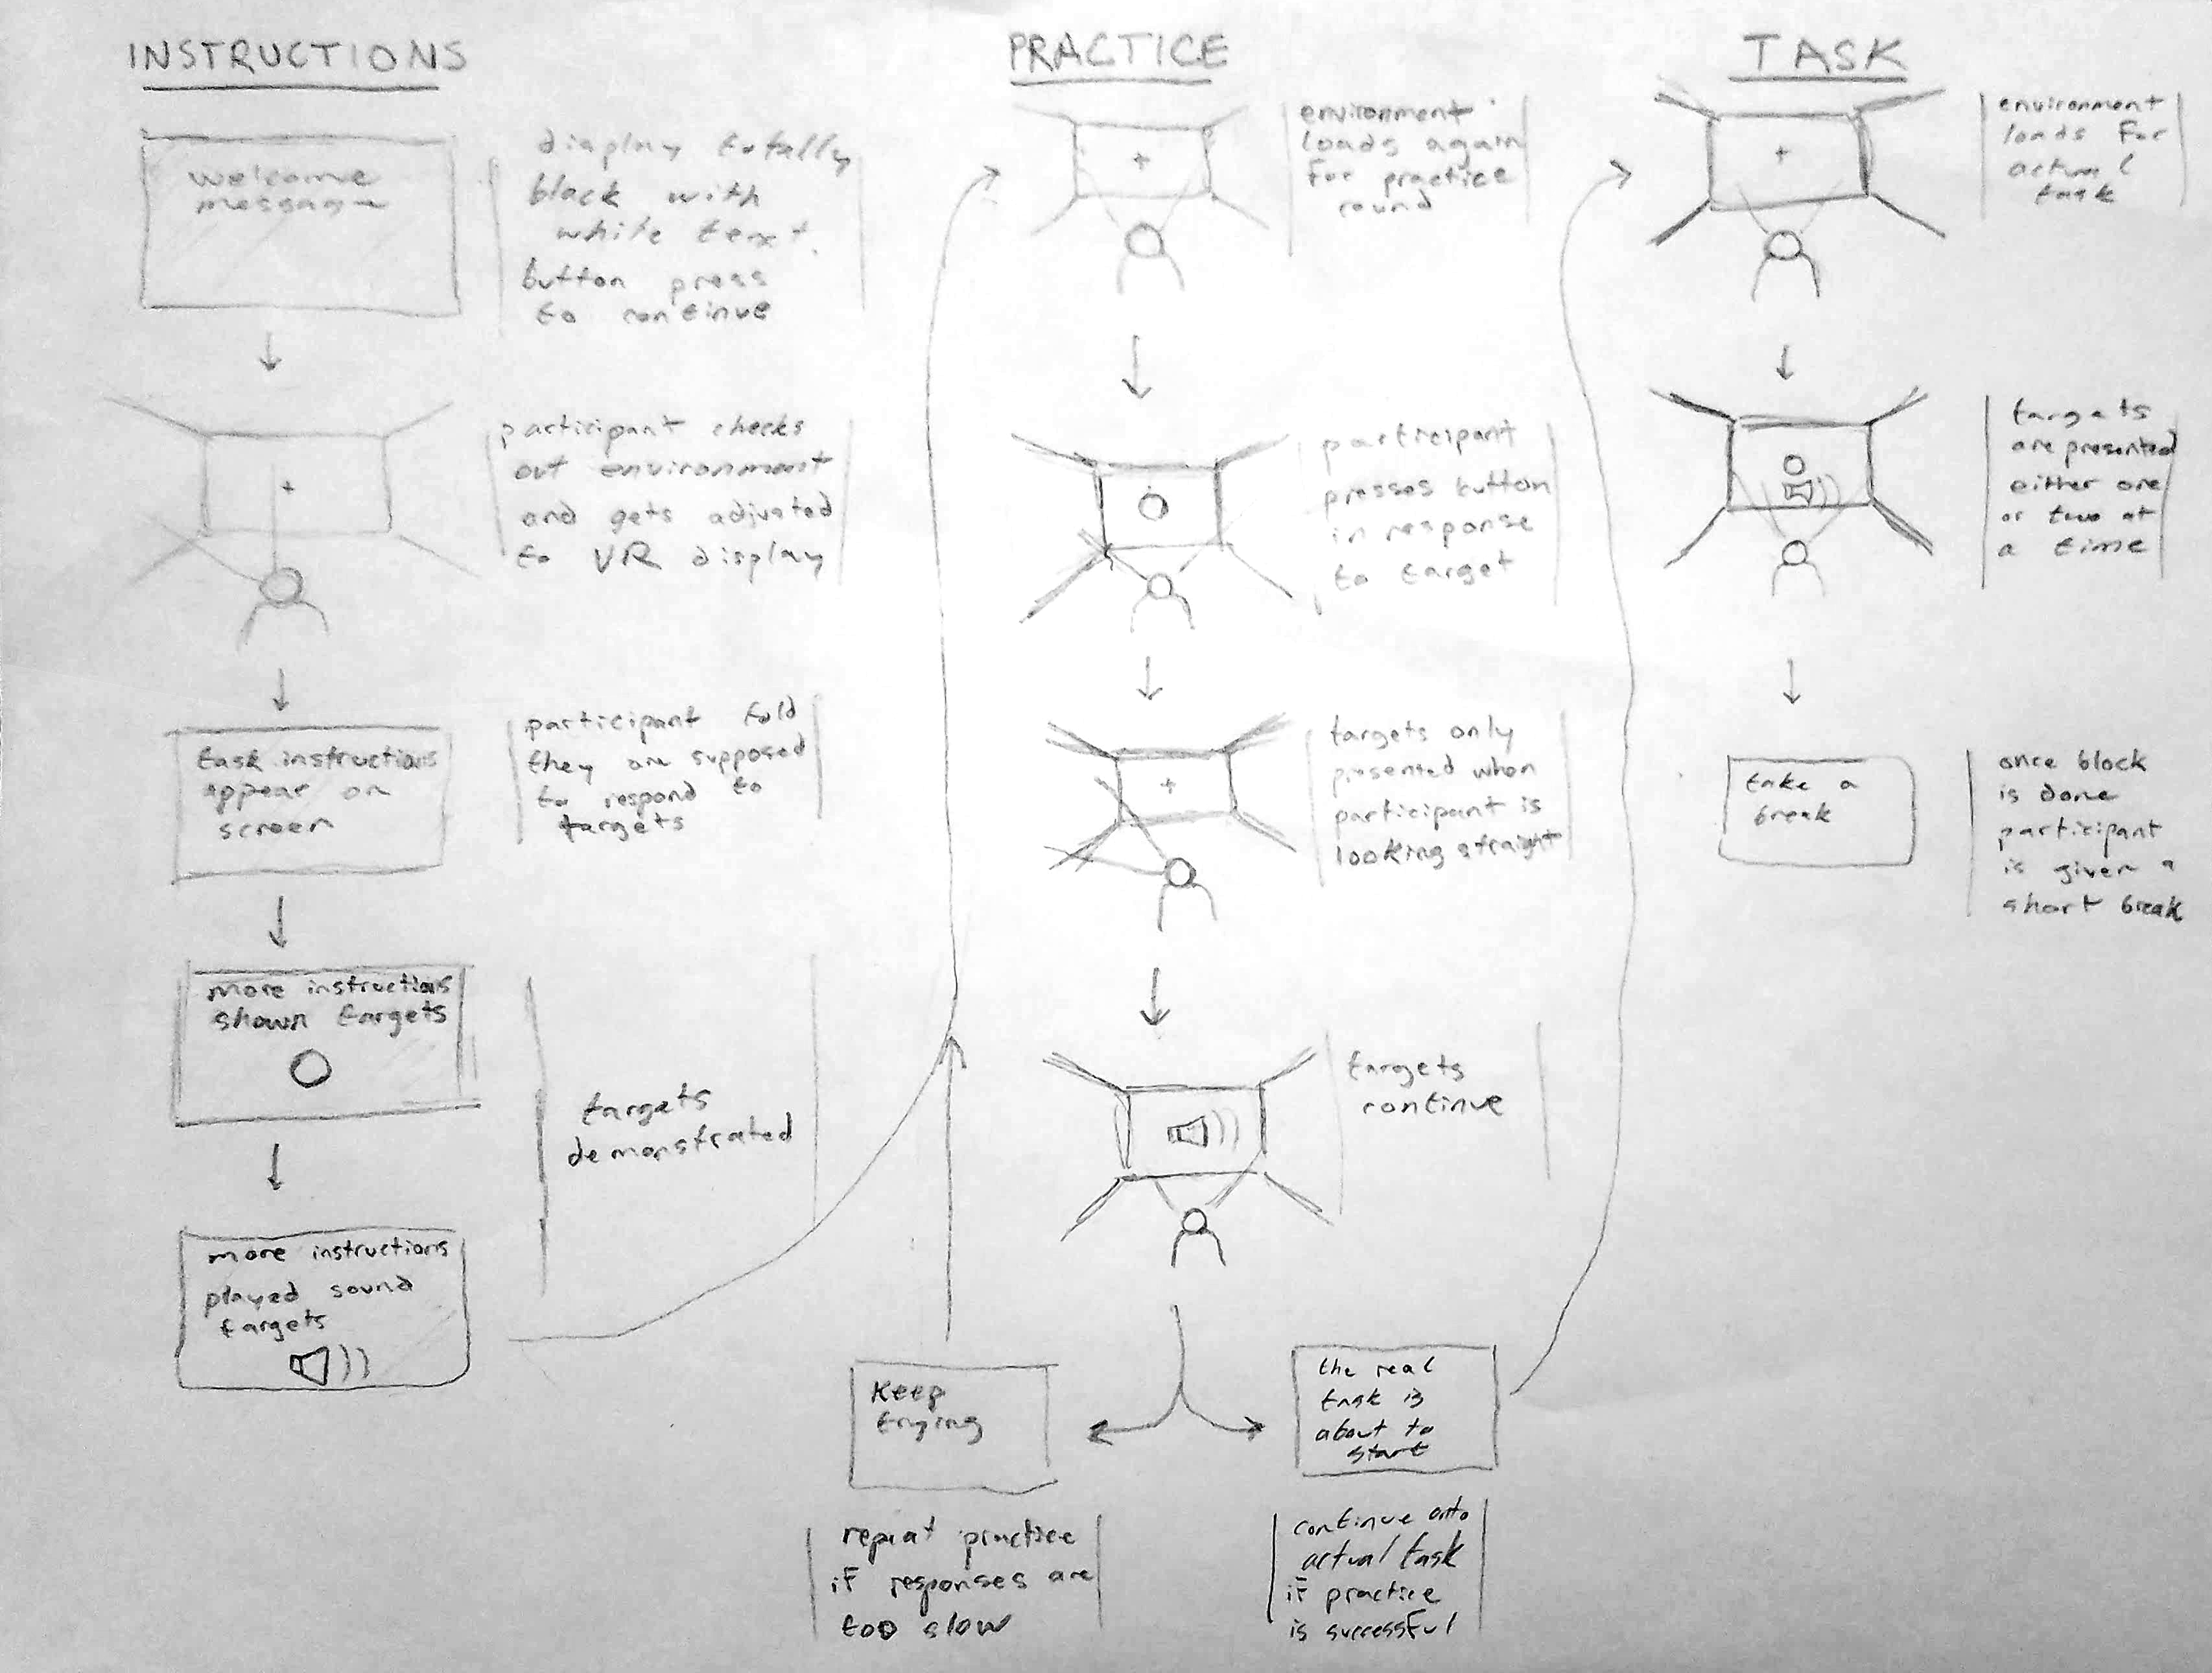 INSTRUCTIONS
welcome
message
display totally
black with
white text.
button press
to continue
participant checks
out environment
and gets adjusted
to VR display
task instructions
appear on
screen
participant told
they are supposed
to respond to
targets
more instructions
shown targets
targets
demonstrated
more instructions
played sound
targets
PRACTICE
environment
loads again
for practice
round
participant
presses button
in response
to target
targets only
presented when
participant is
looking straight
targets
continue
Keep
trying
repeat practice
if responses are
too slow
the real
task is
about to
start
continue onto
actual task
if practice
is successful
TASK
environment
loads for
actual
task
targets
are presented
either one
or two at
a time
take a
break
once block
is done
participant
is given a
short break